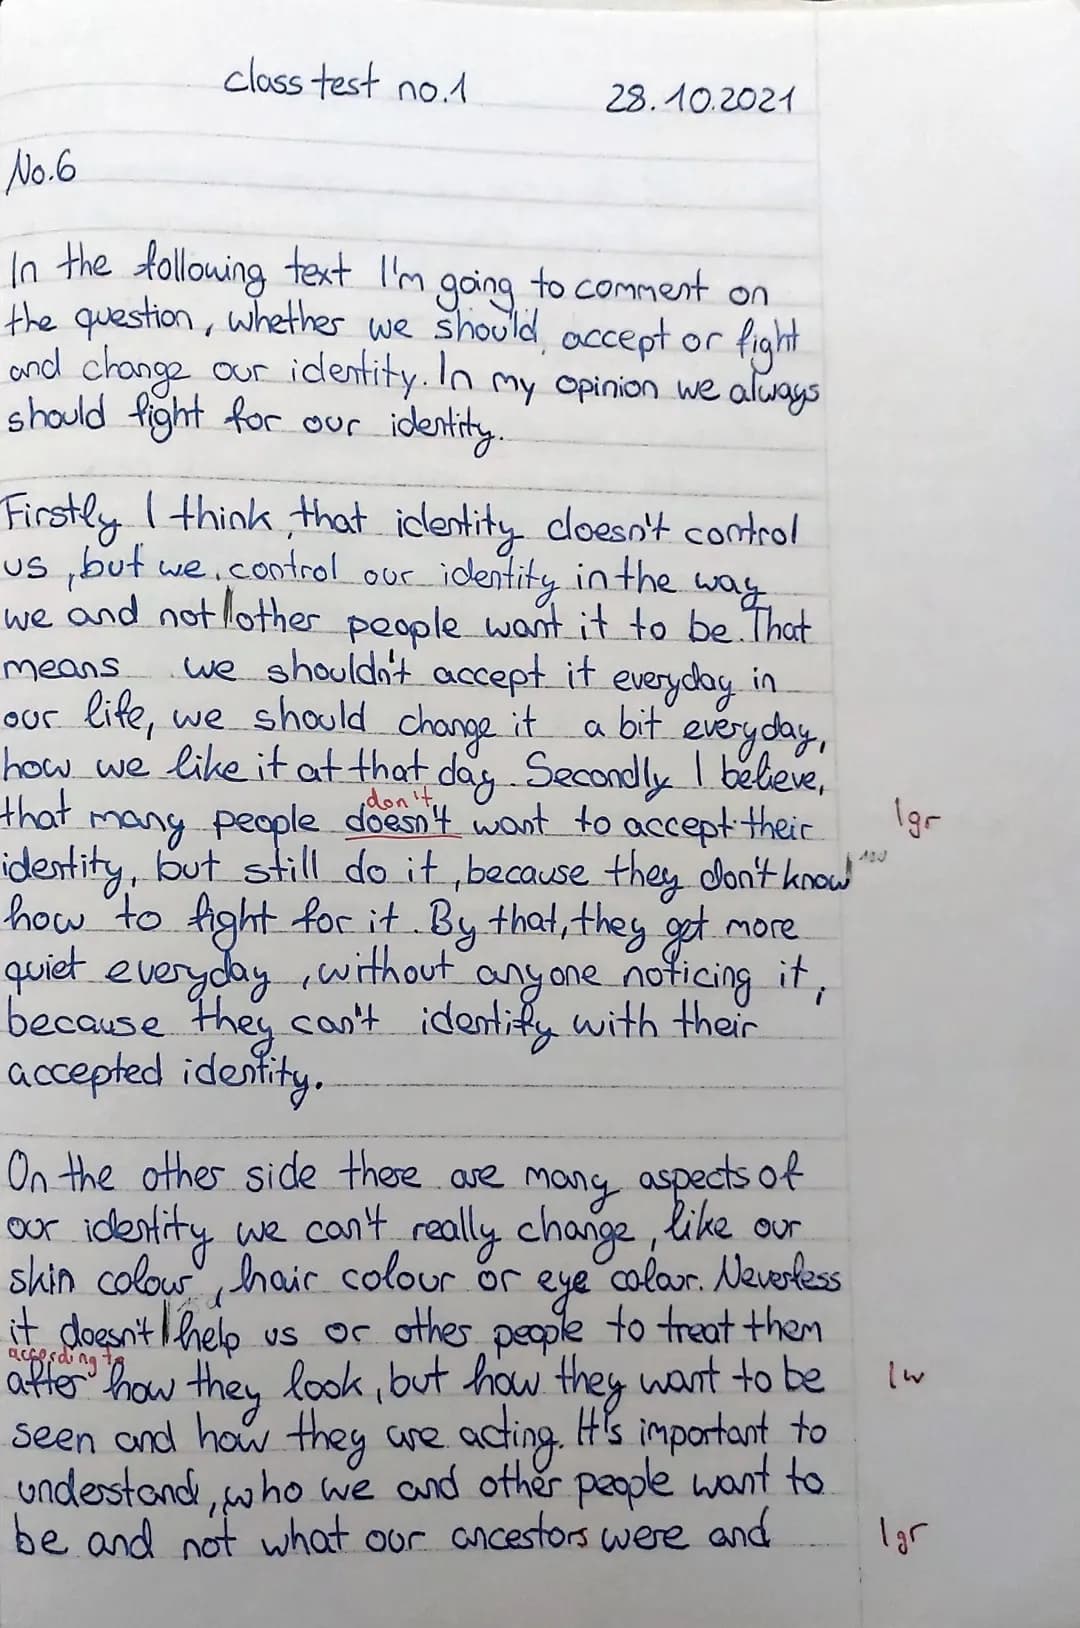 class test no.1 28.10.2021
No.6
In the following text I'm going to comment on
the question, whether we should accept or fight
and change our identity. In my opinion we always
should fight for our identity.
Firstly I think, that identity doesn't control
us, but we control our identity in the way
we and not other people want it to be. That
means we shouldn't accept it everyday in
our life, we should change it a bit everyday,
how we like it at that day. Secondly I believe,
don't
that many people doesn't want to accept their 1gr
identity, but still do it, because they don't know
how to fight for it. By that, they get more
quiet everyday, without anyone noticing it,
because they can't identify with their
accepted identity.
On the other side there are many aspects of
our identity we can't really change, like our
skin colour, hair colour or eye colour. Neverless
it doesn't help us or other people to treat them
according to
after how they look, but how they want to be 1w
seen and how they are acting. It's important to
understand, who we and other people want to
be and not what our ancestors were and 1gr